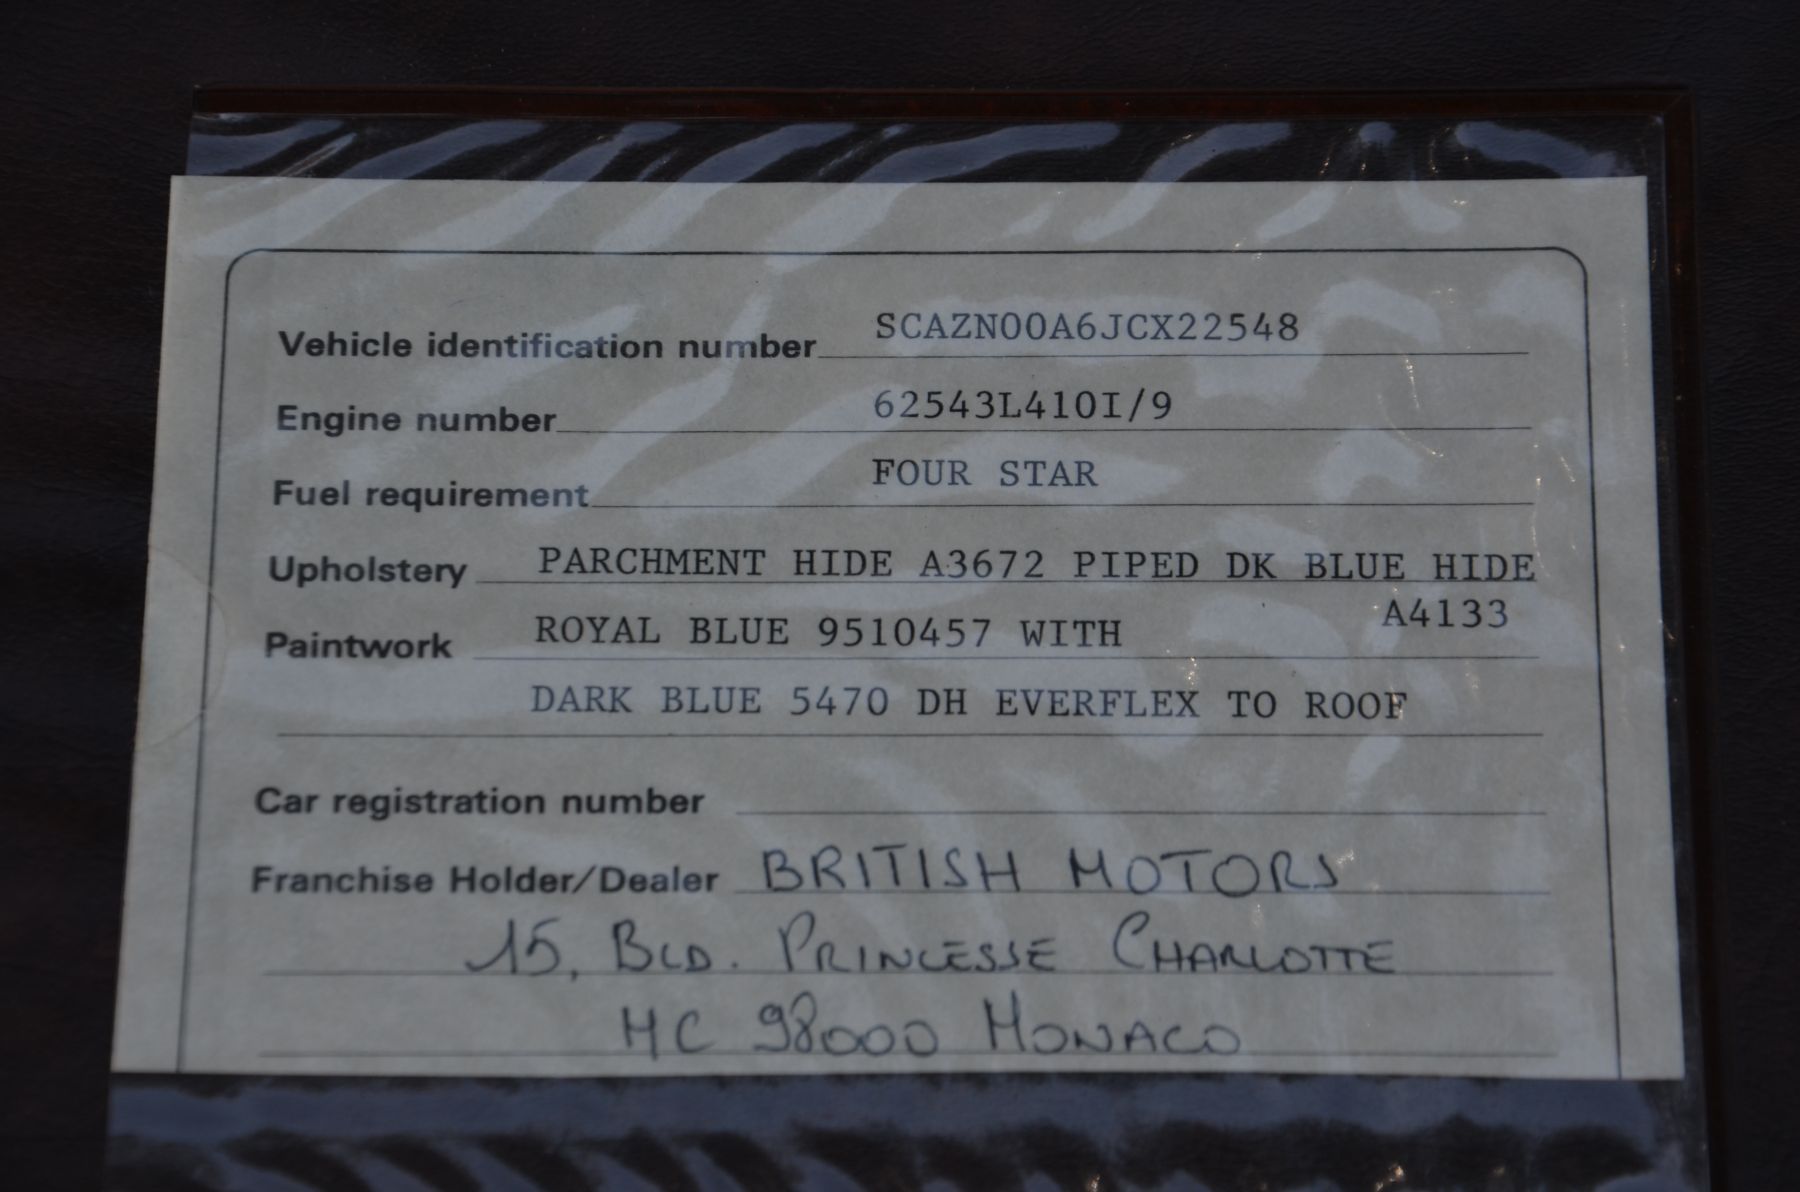 Vehicle identification number SCAZN00A6JCX22548
Engine number 62543L410I/9
Fuel requirement FOUR STAR
Upholstery PARCHMENT HIDE A3672 PIPED DK BLUE HIDE
A4133
Paintwork ROYAL BLUE 9510457 WITH
DARK BLUE 5470 DH EVERFLEX TO ROOF
Car registration number
Franchise Holder/Dealer BRITISH MOTORS
15, BLD. PRINCESSE CHARLOTTE
MC 98000 MONACO